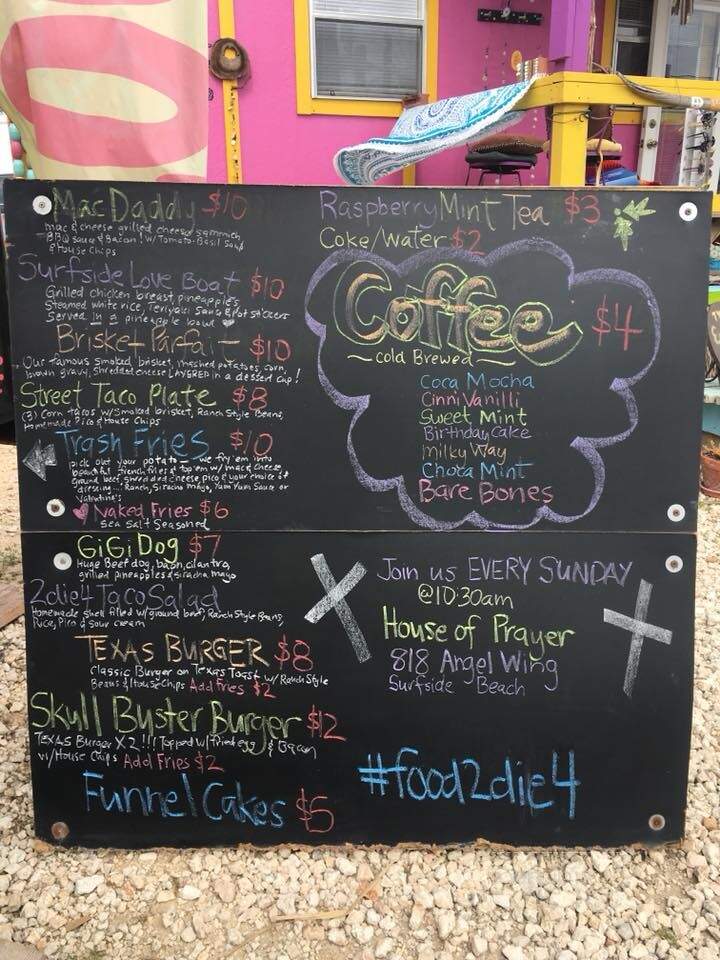 Mac Daddy $10
mac & cheese grilled cheese sammich
BBQ sauce & Bacon! w/ Tomato-Basil Soup
& House Chips
Surfside Love Boat $10
Grilled chicken breast, pineapples,
Steamed white rice, Teriyaki Sauce & pot stickers
Served in a pineapple bowl
Brisket Parfait $10
Our famous smoked brisket, mashed potatoes, corn,
brown gravy, shredded cheese LAYERED in a dessert cup!
Street Taco Plate $8
(3) Corn tacos w/ Smoked brisket, Ranch Style Beans,
Homemade Pico & House Chips
Trash Fries $10
pick out your potato - we fry 'em into
beautiful french fries & top 'em w/ mac & cheese
ground beef, shredded cheese, pico & your choice of
dressing... Ranch, Siracha mayo, Yum Yum Sauce or
Valentina's
Naked Fries $6
Sea Salt Seasoned
GiGi Dog $7
Huge Beef dog, bacon, cilantro,
grilled pineapples & siracha mayo
2die4 Taco Salad
Homemade shell filled w/ ground beef, Ranch Style Beans,
Rice, Pico & Sour cream
TEXAS BURGER $8
Classic Burger on Texas Toast w/ Ranch Style
Beans & House Chips Add Fries $2
Skull Buster Burger $12
TEXAS Burger X2!!! Topped w/ fried egg & Bacon
w/ House Chips Add Fries $2
Funnel Cakes $5
Raspberry Mint Tea $3
Coke/Water $2
Coffee $4
~cold Brewed~
Coca Mocha
Cinni Vanilli
Sweet Mint
Birthday Cake
Milky Way
Choca Mint
Bare Bones
Join us EVERY SUNDAY
@10:30am
House of Prayer
818 Angel Wing
Surfside Beach
#food2die4